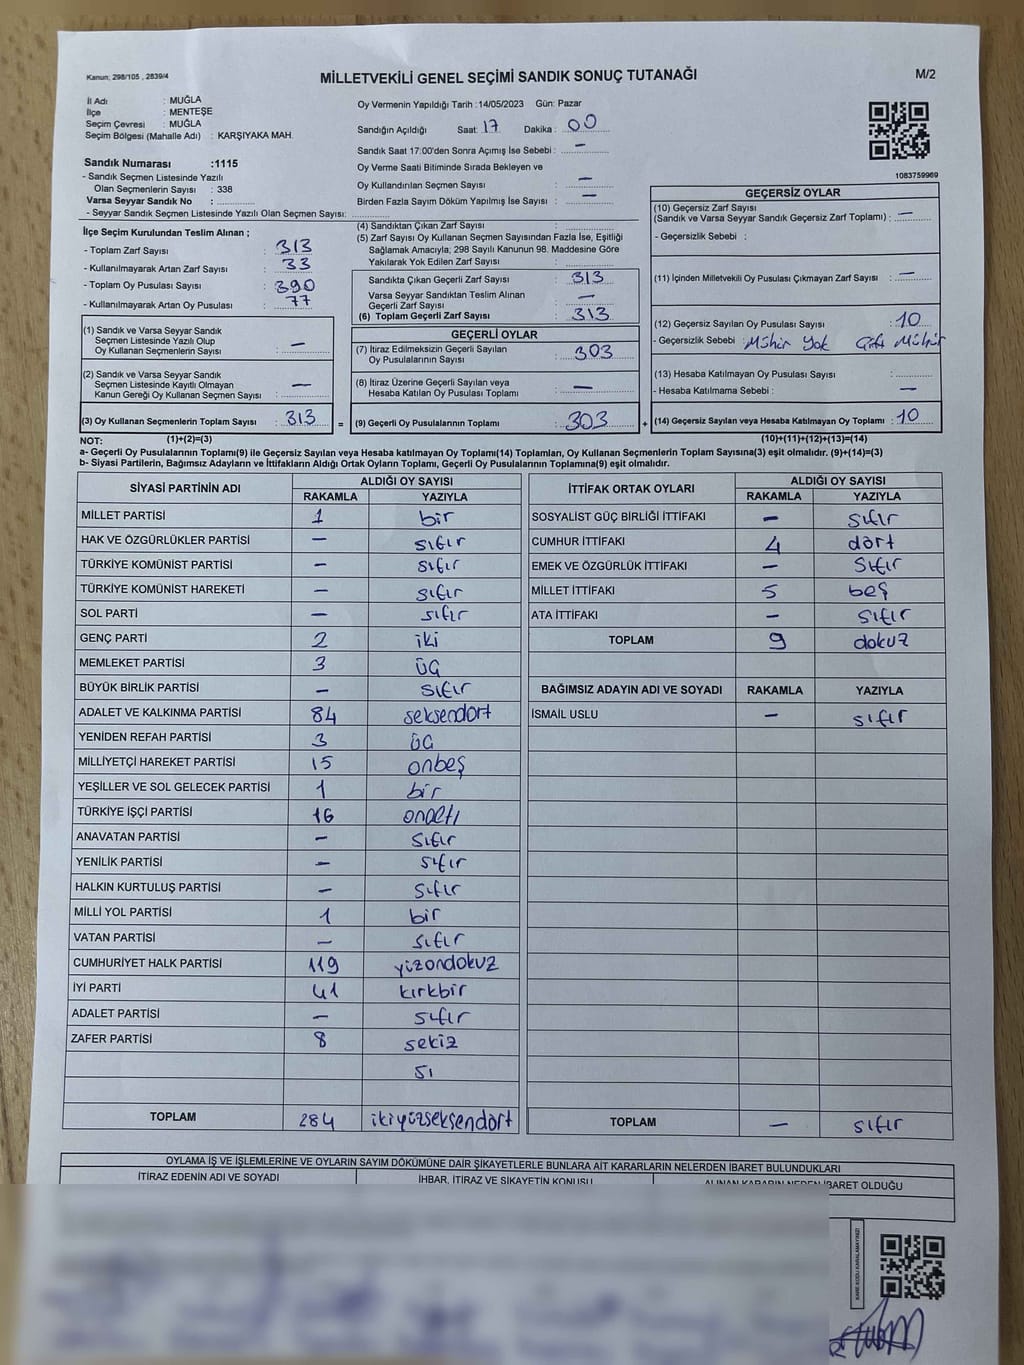 Kanun; 298/105 , 2839/4
MİLLETVEKİLİ GENEL SEÇİMİ SANDIK SONUÇ TUTANAĞI
M/2
İl Adı : MUĞLA
İlçe : MENTEŞE
Seçim Çevresi : MUĞLA
Seçim Bölgesi (Mahalle Adı) : KARŞIYAKA MAH.
Sandık Numarası :1115
- Sandık Seçmen Listesinde Yazılı
Olan Seçmenlerin Sayısı : 338
Varsa Seyyar Sandık No :
- Seyyar Sandık Seçmen Listesinde Yazılı Olan Seçmen Sayısı:
Oy Vermenin Yapıldığı Tarih :14/05/2023 Gün: Pazar
Sandığın Açıldığı Saat: 17 Dakika : 00
Sandık Saat 17:00'den Sonra Açımış İse Sebebi : –
Oy Verme Saati Bitiminde Sırada Bekleyen ve
Oy Kullandırılan Seçmen Sayısı –
Birden Fazla Sayım Döküm Yapılmış İse Sayısı : –
1083759969
İlçe Seçim Kurulundan Teslim Alınan ;
- Toplam Zarf Sayısı : 313
- Kullanılmayarak Artan Zarf Sayısı : 33
- Toplam Oy Pusulası Sayısı : 390
- Kullanılmayarak Artan Oy Pusulası : 77
(1) Sandık ve Varsa Seyyar Sandık
Seçmen Listesinde Yazılı Olup
Oy Kullanan Seçmenlerin Sayısı : –
(2) Sandık ve Varsa Seyyar Sandık
Seçmen Listesinde Kayıtlı Olmayan
Kanun Gereği Oy Kullanan Seçmen Sayısı : –
(3) Oy Kullanan Seçmenlerin Toplam Sayısı : 313
=
(4) Sandıktan Çıkan Zarf Sayısı :
(5) Zarf Sayısı Oy Kullanan Seçmen Sayısından Fazla İse, Eşitliği
Sağlamak Amacıyla, 298 Sayılı Kanunun 98. Maddesine Göre
Yakılarak Yok Edilen Zarf Sayısı :
Sandıkta Çıkan Geçerli Zarf Sayısı : 313
Varsa Seyyar Sandıktan Teslim Alınan
Geçerli Zarf Sayısı : –
(6) Toplam Geçerli Zarf Sayısı : 313
GEÇERLİ OYLAR
(7) İtiraz Edilmeksizin Geçerli Sayılan
Oy Pusulalarının Sayısı : 303
(8) İtiraz Üzerine Geçerli Sayılan veya
Hesaba Katılan Oy Pusulası Toplamı : –
(9) Geçerli Oy Pusulalarının Toplamı : 303
+
GEÇERSİZ OYLAR
(10) Geçersiz Zarf Sayısı
(Sandık ve Varsa Seyyar Sandık Geçersiz Zarf Toplamı) : –
- Geçersizlik Sebebi :
(11) İçinden Milletvekili Oy Pusulası Çıkmayan Zarf Sayısı : –
(12) Geçersiz Sayılan Oy Pusulası Sayısı : 10
- Geçersizlik Sebebi : Mühür Yok Çift Mühür
(13) Hesaba Katılmayan Oy Pusulası Sayısı :
- Hesaba Katılmama Sebebi : –
(14) Geçersiz Sayılan veya Hesaba Katılmayan Oy Toplamı : 10
NOT: (1)+(2)=(3) (10)+(11)+(12)+(13)=(14)
a- Geçerli Oy Pusulalarının Toplamı(9) ile Geçersiz Sayılan veya Hesaba Katılmayan Oy Toplamı(14) Toplamları, Oy Kullanan Seçmenlerin Toplam Sayısına(3) eşit olmalıdır. (9)+(14)=(3)
b- Siyasi Partilerin, Bağımsız Adayların ve İttifakların Aldığı Ortak Oyların Toplamı, Geçerli Oy Pusulalarının Toplamına(9) eşit olmalıdır.
SİYASİ PARTİNİN ADI ALDIĞI OY SAYISI
RAKAMLA YAZIYLA
MİLLET PARTİSİ 1 bir
HAK VE ÖZGÜRLÜKLER PARTİSİ – sıfır
TÜRKİYE KOMÜNİST PARTİSİ – sıfır
TÜRKİYE KOMÜNİST HAREKETİ – sıfır
SOL PARTİ – sıfır
GENÇ PARTİ 2 iki
MEMLEKET PARTİSİ 3 üç
BÜYÜK BİRLİK PARTİSİ – sıfır
ADALET VE KALKINMA PARTİSİ 84 seksendört
YENİDEN REFAH PARTİSİ 3 üç
MİLLİYETÇİ HAREKET PARTİSİ 15 onbeş
YEŞİLLER VE SOL GELECEK PARTİSİ 1 bir
TÜRKİYE İŞÇİ PARTİSİ 16 onaltı
ANAVATAN PARTİSİ – sıfır
YENİLİK PARTİSİ – sıfır
HALKIN KURTULUŞ PARTİSİ – sıfır
MİLLİ YOL PARTİSİ 1 bir
VATAN PARTİSİ – sıfır
CUMHURİYET HALK PARTİSİ 119 yüzondokuz
İYİ PARTİ 41 kırkbir
ADALET PARTİSİ – sıfır
ZAFER PARTİSİ 8 sekiz
sı
TOPLAM 284 ikiyüzseksendört
İTTİFAK ORTAK OYLARI ALDIĞI OY SAYISI
RAKAMLA YAZIYLA
SOSYALİST GÜÇ BİRLİĞİ İTTİFAKI – sıfır
CUMHUR İTTİFAKI 4 dört
EMEK VE ÖZGÜRLÜK İTTİFAKI – sıfır
MİLLET İTTİFAKI 5 beş
ATA İTTİFAKI – sıfır
TOPLAM 9 dokuz
BAĞIMSIZ ADAYIN ADI VE SOYADI RAKAMLA YAZIYLA
İSMAİL USLU – sıfır
TOPLAM – sıfır
OYLAMA İŞ VE İŞLEMLERİNE VE OYLARIN SAYIM DÖKÜMÜNE DAİR ŞİKAYETLERLE BUNLARA AİT KARARLARIN NELERDEN İBARET BULUNDUKLARI
İTİRAZ EDENİN ADI VE SOYADI
İHBAR, İTİRAZ VE ŞİKAYETİN KONUSU
ALINAN KARARIN NEDEN İBARET OLDUĞU
KARE KODU KARALAMAYINIZ!